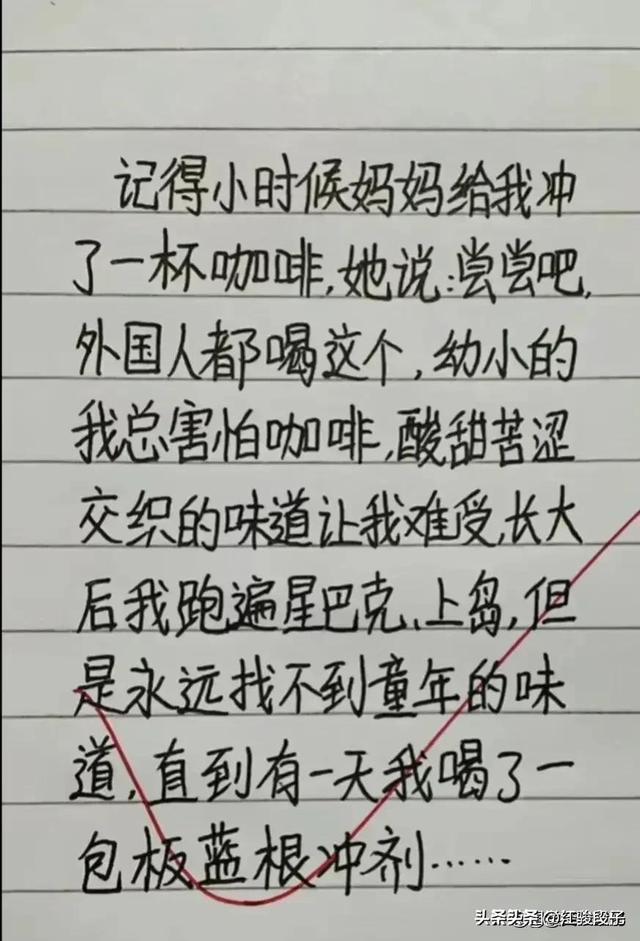 记得小时候妈妈给我冲
了一杯咖啡,她说:尝尝吧,
外国人都喝这个,幼小的
我总害怕咖啡,酸甜苦涩
交织的味道让我难受,长大
后我跑遍星巴克、上岛,但
是永远找不到童年的味
道,直到有一天我喝了一
包板蓝根冲剂……
头条 @红骏段子